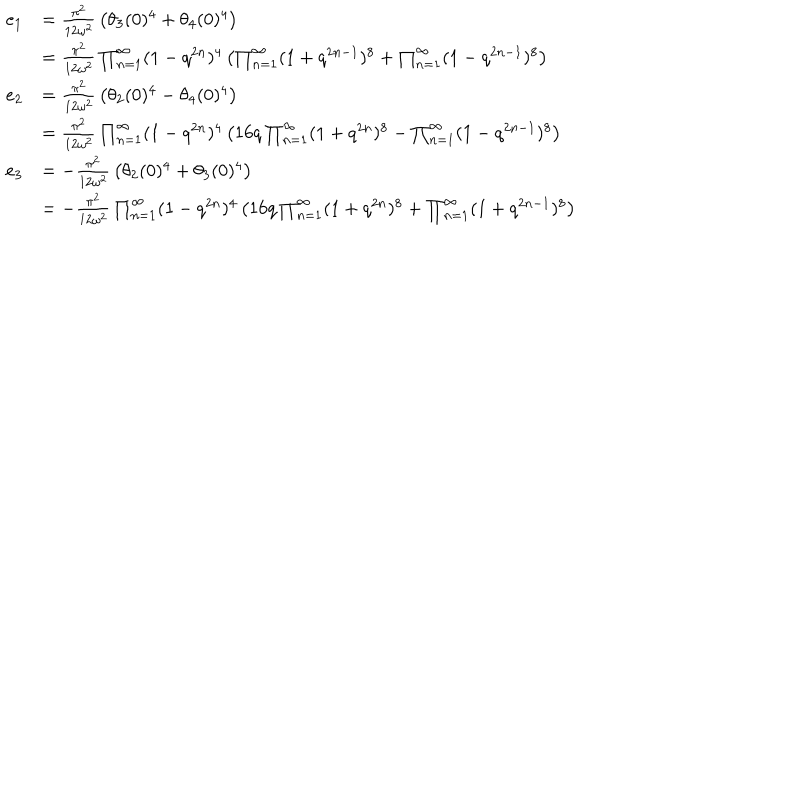 e₁ = π²/12ω² (θ₃(0)⁴ + θ₄(0)⁴)
= π²/12ω² ∏ₙ₌₁^∞ (1 − q²ⁿ)⁴ (∏ₙ₌₁^∞ (1 + q²ⁿ⁻¹)⁸ + ∏ₙ₌₁^∞ (1 − q²ⁿ⁻¹)⁸)
e₂ = π²/12ω² (θ₂(0)⁴ − θ₄(0)⁴)
= π²/12ω² ∏ₙ₌₁^∞ (1 − q²ⁿ)⁴ (16q ∏ₙ₌₁^∞ (1 + q²ⁿ)⁸ − ∏ₙ₌₁^∞ (1 − q²ⁿ⁻¹)⁸)
e₃ = −π²/12ω² (θ₂(0)⁴ + θ₃(0)⁴)
= −π²/12ω² ∏ₙ₌₁^∞ (1 − q²ⁿ)⁴ (16q ∏ₙ₌₁^∞ (1 + q²ⁿ)⁸ + ∏ₙ₌₁^∞ (1 + q²ⁿ⁻¹)⁸)